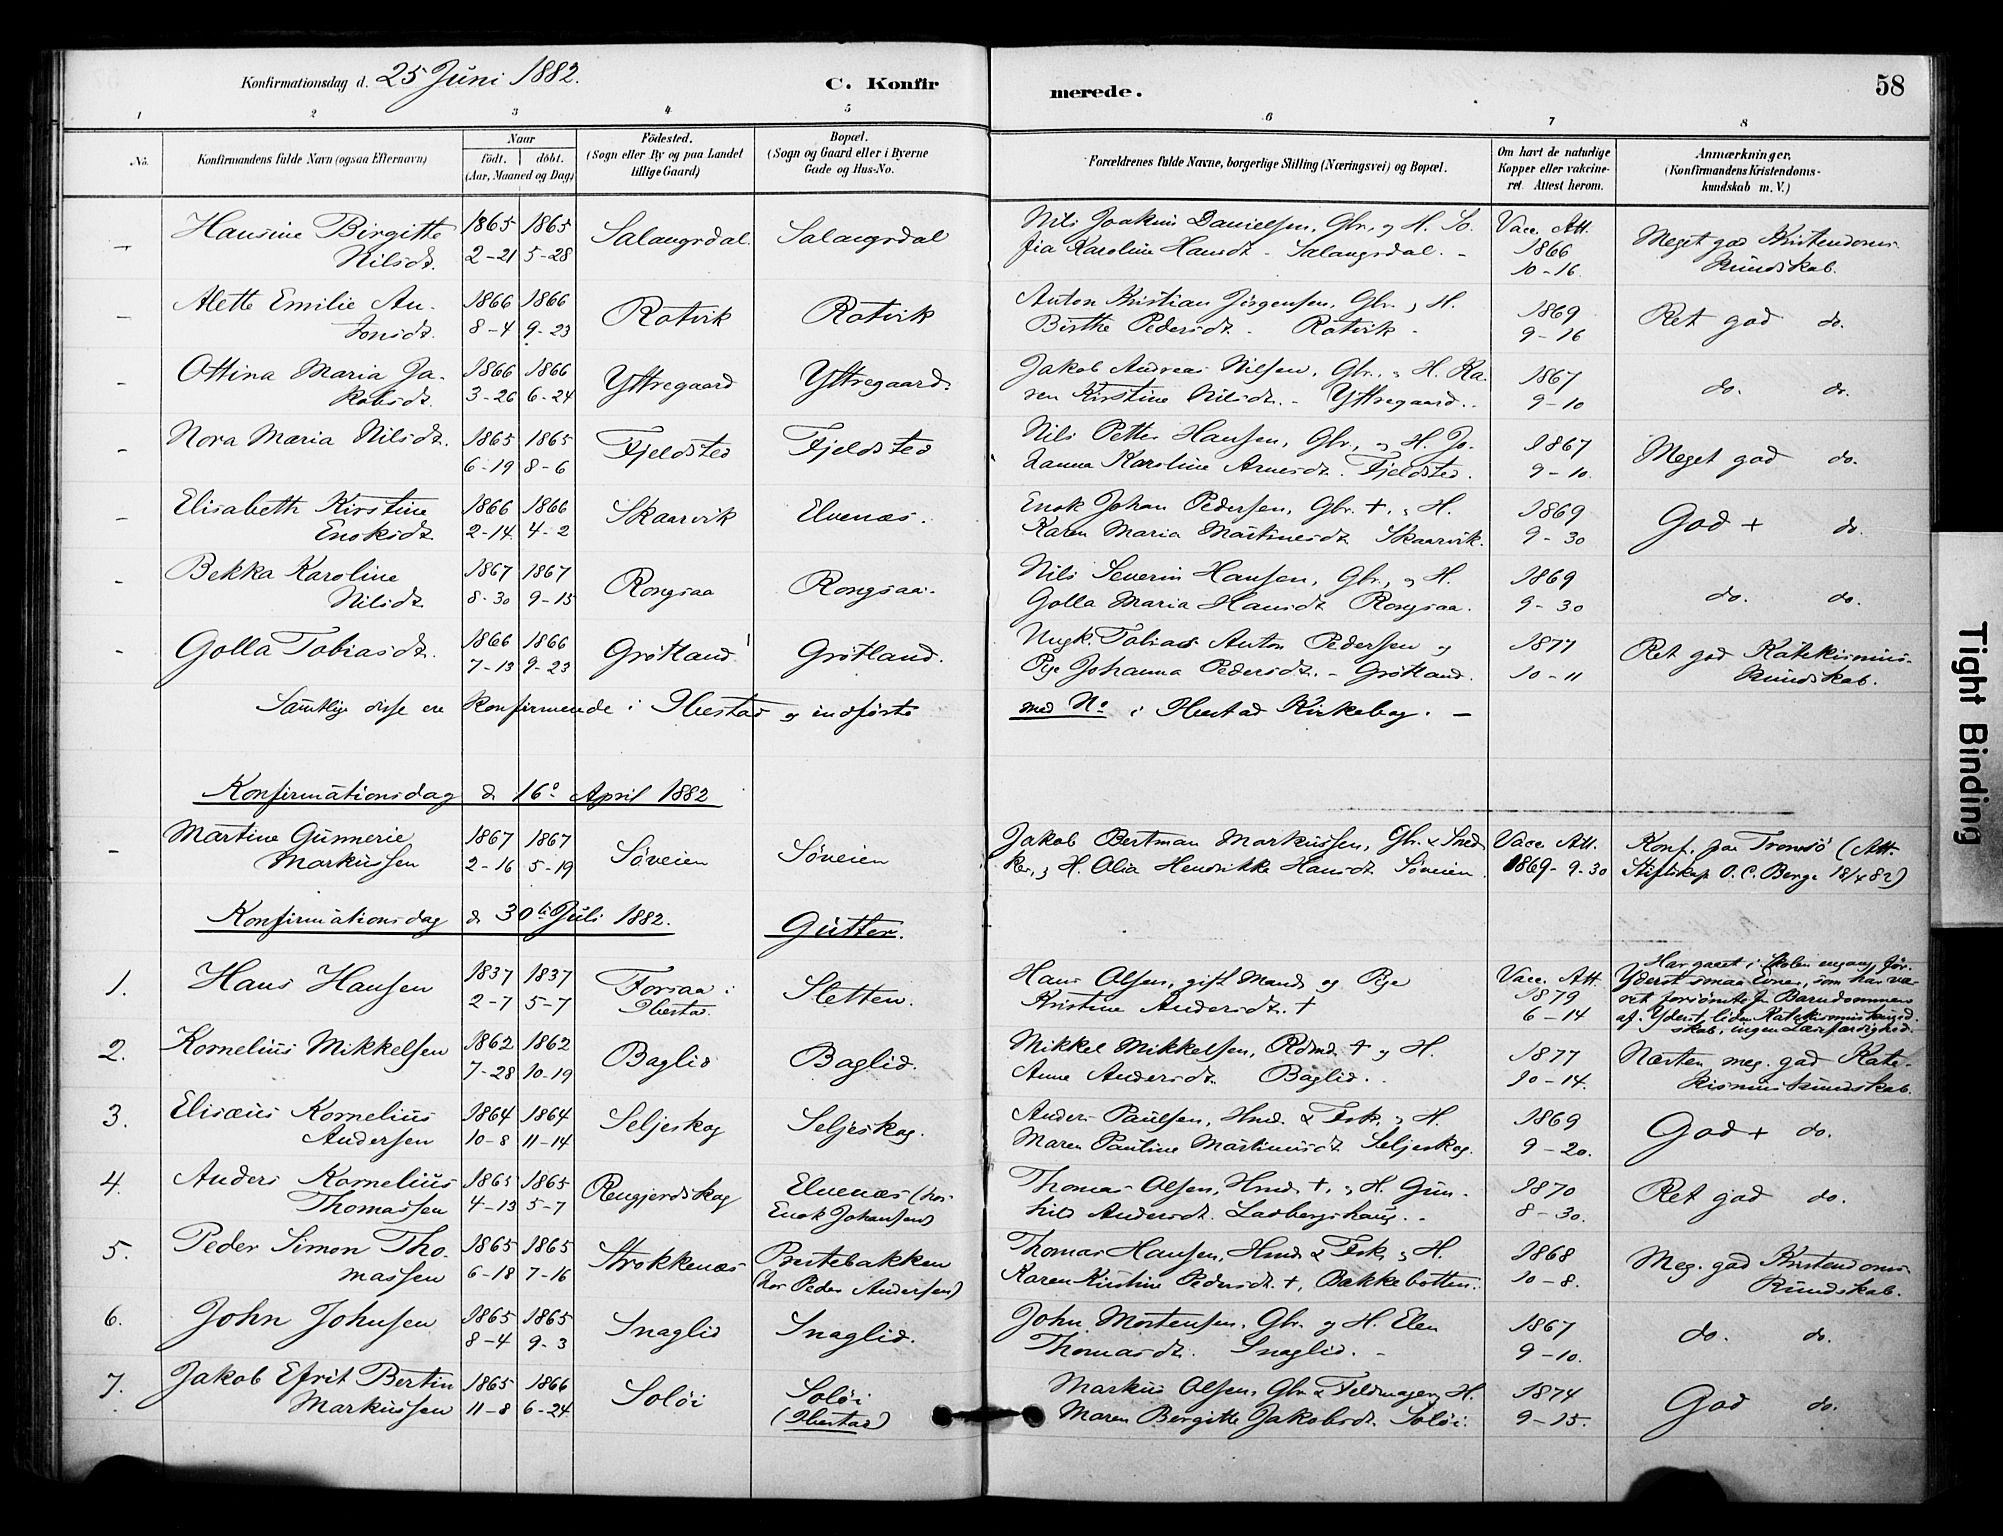 Konfirmationsdag d. 25 Juni 1882.
C. Konfirmerede.
58
1 2 3 4 5 6 7 8
No.
Konfirmandens fulde Navn (ogsaa Efternavn)
Naar
födt. döbt.
(Aar, Maaned og Dag)
Födested.
(Sogn eller By og paa Landet
tillige Gaard)
Bopæl.
(Sogn og Gaard eller i Byerne
Gade og Hus-No.
Forældrenes fulde Navne, borgerlige Stilling (Næringsvei) og Bopæl.
Om havt de naturlige
Kopper eller vakcine-
ret. Attest herom.
Anmærkninger,
(Konfirmandens Kristendoms-
kundskab m. V.)
– Hansine Birgitte 1865 1865 Salangsdal. Salangsdal Nils Joakim Danielsen, Gbr. og H. So- Vacc. Att. Meget god Kristendoms-
Nilsdt. 2-21 5-28 fia Karoline Hansdt. - Salangsdal. - 1866 kundskab.
10-16.
– Alette Emilie An- 1866 1866 Rotvik Rotvik Anton Kristian Jörgensen, Gbr. og H. 1869 Ret god do.
tonsdt. 8-4 9-23 Birthe Pedersdt. - Rotvik - 9-16
– Ottina Maria Ja- 1866 1866 Yttregaard Yttregaard. Jakob Andreas Nilsen, Gbr., og H. Ka- 1867 do. do.
kobsdt. 3-26 6-24 ren Kirstine Nilsdt. - Yttregaard.. 9-10
– Nora Maria Nilsdt. 1865 1865 Fjeldsted Fjeldsted Nils Petter Hansen, Gbr., og H. Jo- 1867 Meget god do.
6-19 8-6 hanna Karoline Arnesdt. Fjeldsted. 9-10.
– Elisabeth Kirstine 1866 1866 Skaarvik Elvenæs. Enok Johan Pedersen, Gbr. +, og H. 1869 God + do.
Enoksdt. 2-14 4-2 Karen Maria Martinesdt. Skaarvik. 9-30
– Bekka Karoline 1867 1867 Rongsaa Rongsaa. Nils Severin Hansen, Gbr., og H. 1869 do. do.
Nilsdt. 8-30 9-15 Golla Maria Hansdt. Rongsaa. 9-30
– Golla Tobiasdt. 1866 1866 Grötland Grötland. Ungk. Tobias Anton Pedersen og 1877 Ret god Katekismus-
7-13 9-23 Pige Johanna Pedersdt. - Grötland. 10-11 kundskab.
Samtlige disse ere konfirmerede i Ibestad og indförte med No i Ibestad Kirkebog. –
Konfirmationsdag d 16de April 1882
– Martine Gunnerie 1867 1867 Söveien Söveien Jakob Bertman Markussen, Gbr. & Sned- Vacc. Att. Konf. paa Tromsö (Att.
Markussen 2-16 5-19 ker, og H. Olia Hendrikke Hansdt. Söveien. 1869-9-30 Stiftskap. O. C. Berge 18/4 82)
Konfirmationsdag d 30te Juli 1882. Gutter.
1. Hans Hansen 1837 1837 Forsaa i Sletten. Hans Olsen, gift Mand og Pige Vacc. Att. Har gaaet i Skolen engang för.
2-7 5-7 Ibestad. Kristine Andersdt. + 1879 Yderst smaa Evner, som har væ-
6-14 ret forsömte fra Barndommen
af. Yderst liden Katekismuskund-
skab, ingen Læsefærdighed.
2. Kornelius Mikkelsen 1862 1862 Baglid Baglid. Mikkel Mikkelsen, Rdmd. + og H. 1877 Næsten meg. god Kate-
7-28 10-19 Anne Andersdt. Baglid.. 10-14. kismuskundskab.
3. Elisæus Kornelius 1864 1864 Seljeskog Seljeskog. Anders Paulsen, Hmd. & Fisk. og H. 1869 God + do.
Andersen 10-8 11-14 Maren Pauline Martinusdt. Seljeskog. 9-20.
4. Anders Kornelius 1865 1865 Rengjerdskog Elvenæs (hos Thomas Olsen, Hmd. +, og H. Gun- 1870 Ret god do.
Thomassen 4-13 5-7 Enok Johansen) hild Andersdt. Ladbergshaug.. 8-30.
5. Peder Simon Tho- 1865 1865 Strokkenæs Prestebakken Thomas Hansen, Hmd. & Fisk. og H. 1868 Meg. god Kristendoms-
massen 6-18 7-16 (hos Peder Andersen) Karen Kirstine Pedersdt. +, Bakkebotten. 10-8. kundskab.
6. John Johnsen 1865 1865 Snaglid Snaglid. John Mortensen, Gbr. og H. Elen 1867 do. do.
8-4 9-3 Thomasdt. Snaglid. - 9-10.
7. Jakob Efrit Bertin 1865 1866 Solöi Solöi Markus Olsen, Gbr. & Feldmager, H. 1874 God do.
Markussen 11-8 6-24 (Ibestad) Maren Bergitte Jakobsdt. Solöi. 9-15.
Tight Binding